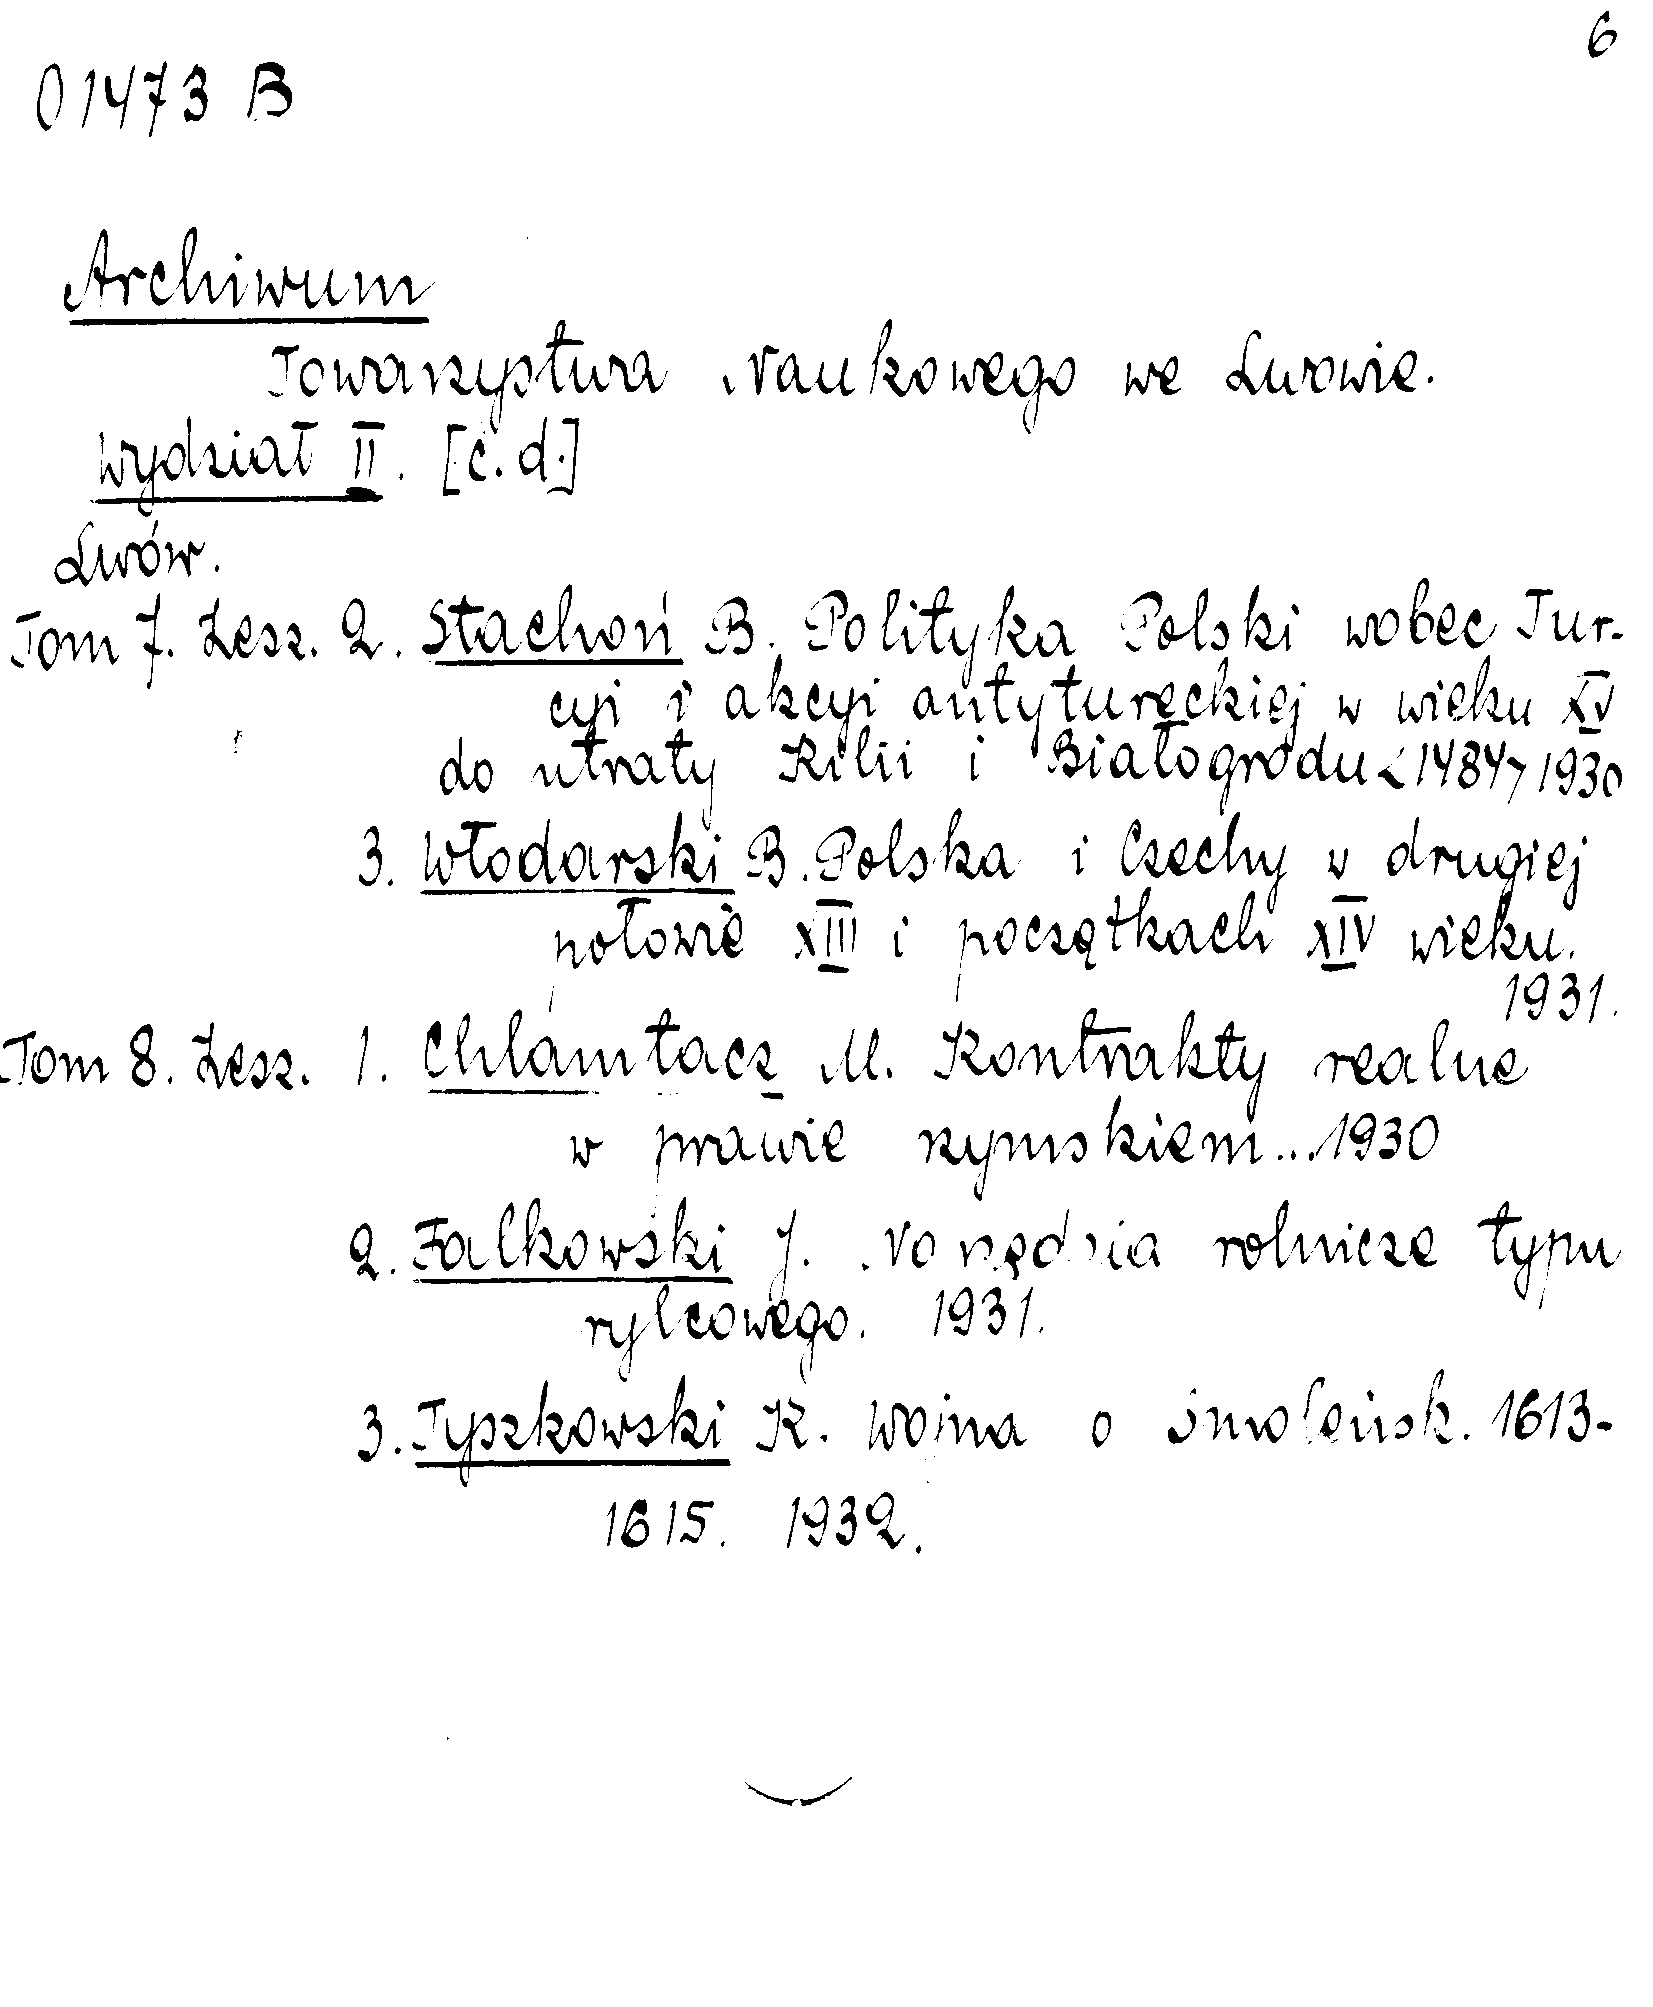 6
01473 B
Archiwum
Towarzystwa Naukowego we Lwowie.
Wydział II. [c. d.]
Lwów.
Tom 7. Zesz. 2. Stachoń B. Polityka Polski wobec Tur-
cyi i akcyi antytureckiej w wieku XV
do utraty Kilii i Białogrodu <1484> 1930
3. Włodarski B. Polska i Czechy w drugiej
połowie XIII i początkach XIV wieku.
1931.
Tom 8. Zesz. 1. Chlamtacz M. Kontrakty realne
w prawie rzymskiem... 1930
2. Falkowski J. Narzędzia rolnicze typu
rylcowego. 1931.
3. Tyszkowski K. Wojna o Smoleńsk. 1613-
1615. 1932.